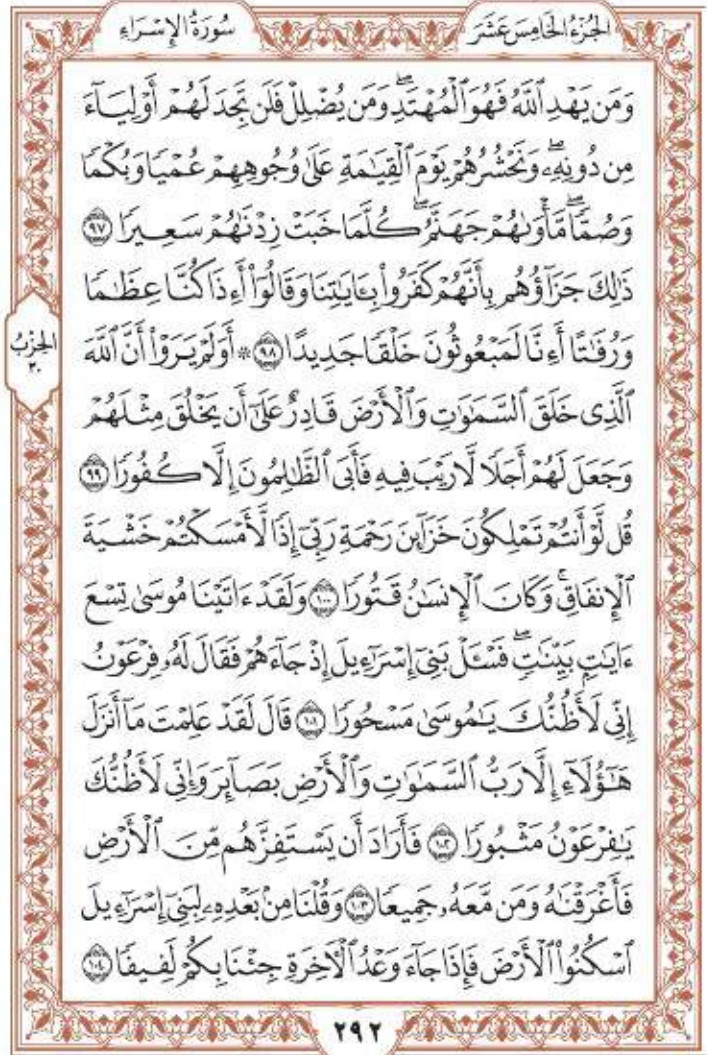 الجزء الخامس عشر
سورة الإسراء
وَمَن يَهْدِ ٱللَّهُ فَهُوَ ٱلْمُهْتَدِۖ وَمَن يُضْلِلْ فَلَن تَجِدَ لَهُمْ أَوْلِيَآءَ
مِن دُونِهِۦۖ وَنَحْشُرُهُمْ يَوْمَ ٱلْقِيَـٰمَةِ عَلَىٰ وُجُوهِهِمْ عُمْيًا وَبُكْمًا
وَصُمًّاۖ مَّأْوَىٰهُمْ جَهَنَّمُۖ كُلَّمَا خَبَتْ زِدْنَـٰهُمْ سَعِيرًا ٩٧
ذَٰلِكَ جَزَآؤُهُم بِأَنَّهُمْ كَفَرُوا۟ بِـَٔايَـٰتِنَا وَقَالُوٓا۟ أَءِذَا كُنَّا عِظَـٰمًا
وَرُفَـٰتًا أَءِنَّا لَمَبْعُوثُونَ خَلْقًا جَدِيدًا ٩٨ ۞ أَوَلَمْ يَرَوْا۟ أَنَّ ٱللَّهَ
ٱلَّذِى خَلَقَ ٱلسَّمَـٰوَٰتِ وَٱلْأَرْضَ قَادِرٌ عَلَىٰٓ أَن يَخْلُقَ مِثْلَهُمْ
وَجَعَلَ لَهُمْ أَجَلًا لَّا رَيْبَ فِيهِ فَأَبَى ٱلظَّـٰلِمُونَ إِلَّا كُفُورًا ٩٩
قُل لَّوْ أَنتُمْ تَمْلِكُونَ خَزَآئِنَ رَحْمَةِ رَبِّىٓ إِذًا لَّأَمْسَكْتُمْ خَشْيَةَ
ٱلْإِنفَاقِۚ وَكَانَ ٱلْإِنسَـٰنُ قَتُورًا ١٠٠ وَلَقَدْ ءَاتَيْنَا مُوسَىٰ تِسْعَ
ءَايَـٰتٍۭ بَيِّنَـٰتٍۖ فَسْـَٔلْ بَنِىٓ إِسْرَٰٓءِيلَ إِذْ جَآءَهُمْ فَقَالَ لَهُۥ فِرْعَوْنُ
إِنِّى لَأَظُنُّكَ يَـٰمُوسَىٰ مَسْحُورًا ١٠١ قَالَ لَقَدْ عَلِمْتَ مَآ أَنزَلَ
هَـٰٓؤُلَآءِ إِلَّا رَبُّ ٱلسَّمَـٰوَٰتِ وَٱلْأَرْضِ بَصَآئِرَ وَإِنِّى لَأَظُنُّكَ
يَـٰفِرْعَوْنُ مَثْبُورًا ١٠٢ فَأَرَادَ أَن يَسْتَفِزَّهُم مِّنَ ٱلْأَرْضِ
فَأَغْرَقْنَـٰهُ وَمَن مَّعَهُۥ جَمِيعًا ١٠٣ وَقُلْنَا مِنۢ بَعْدِهِۦ لِبَنِىٓ إِسْرَٰٓءِيلَ
ٱسْكُنُوا۟ ٱلْأَرْضَ فَإِذَا جَآءَ وَعْدُ ٱلْـَٔاخِرَةِ جِئْنَا بِكُمْ لَفِيفًا ١٠٤
الحزب
٣٠
٢٩٢